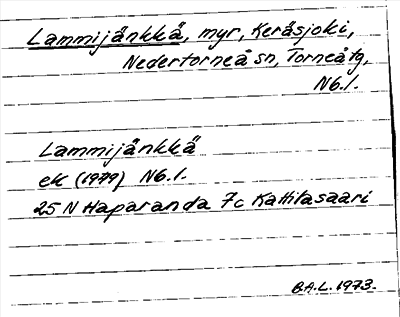 Lammijänkkä, myr, Keräsjoki,
Nedertorneå sn, Torneåtg,
N6.1.
Lammijänkkä
ek (1979) N6.1.
25 N Haparanda 7c Kattilasaari
B.A.L. 1973.